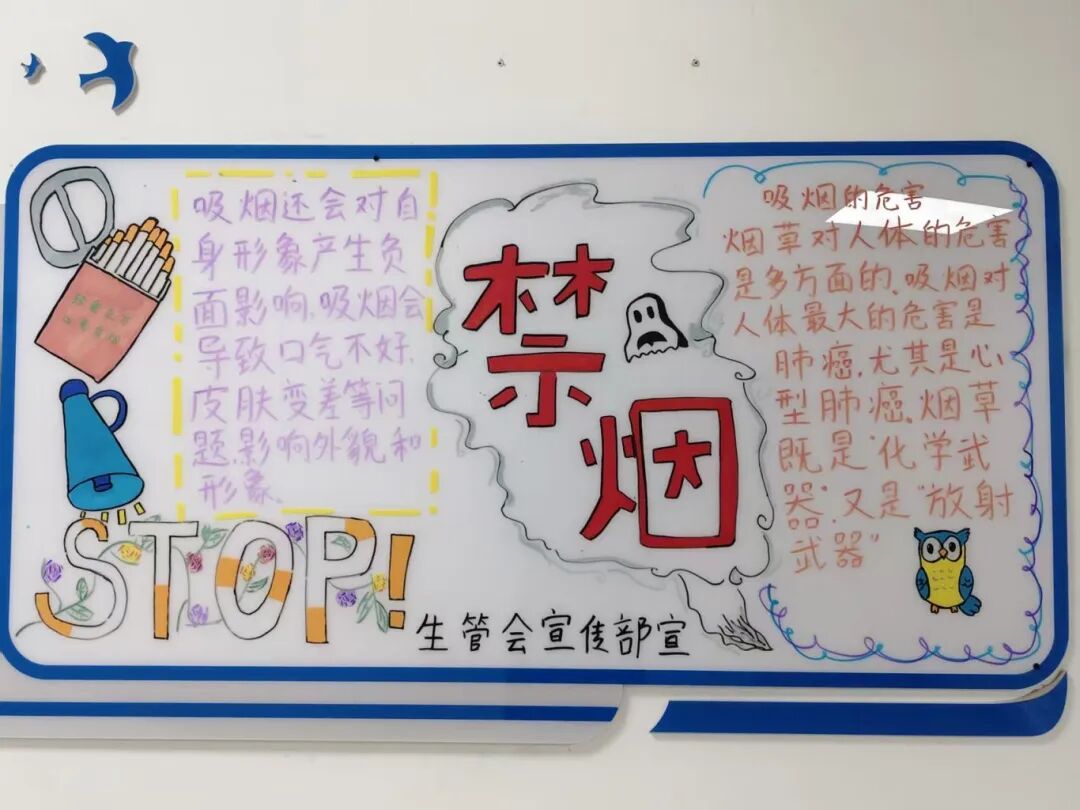 吸烟还会对自
身形象产生负
面影响,吸烟会
导致口气不好,
皮肤变差等问
题,影响外貌和
形象.
STOP!
禁
烟
生管会宣传部宣
吸烟的危害
烟草对人体的危害
是多方面的.吸烟对
人体最大的危害是
肺癌,尤其是心
型肺癌.烟草
既是“化学武
器”,又是“放射
武器”